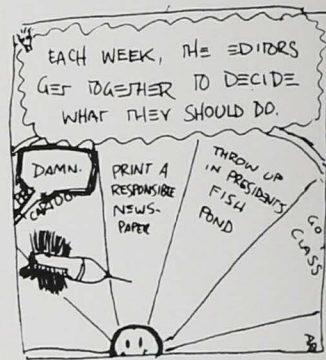 EACH WEEK, THE EDITORS
GET TOGETHER TO DECIDE
WHAT THEY SHOULD DO.
DAMN.
CARTOON
PRINT A
RESPONSIBLE
NEWS-
PAPER
THROW UP
IN PRESIDENTS
FISH
POND
GO
CLASS